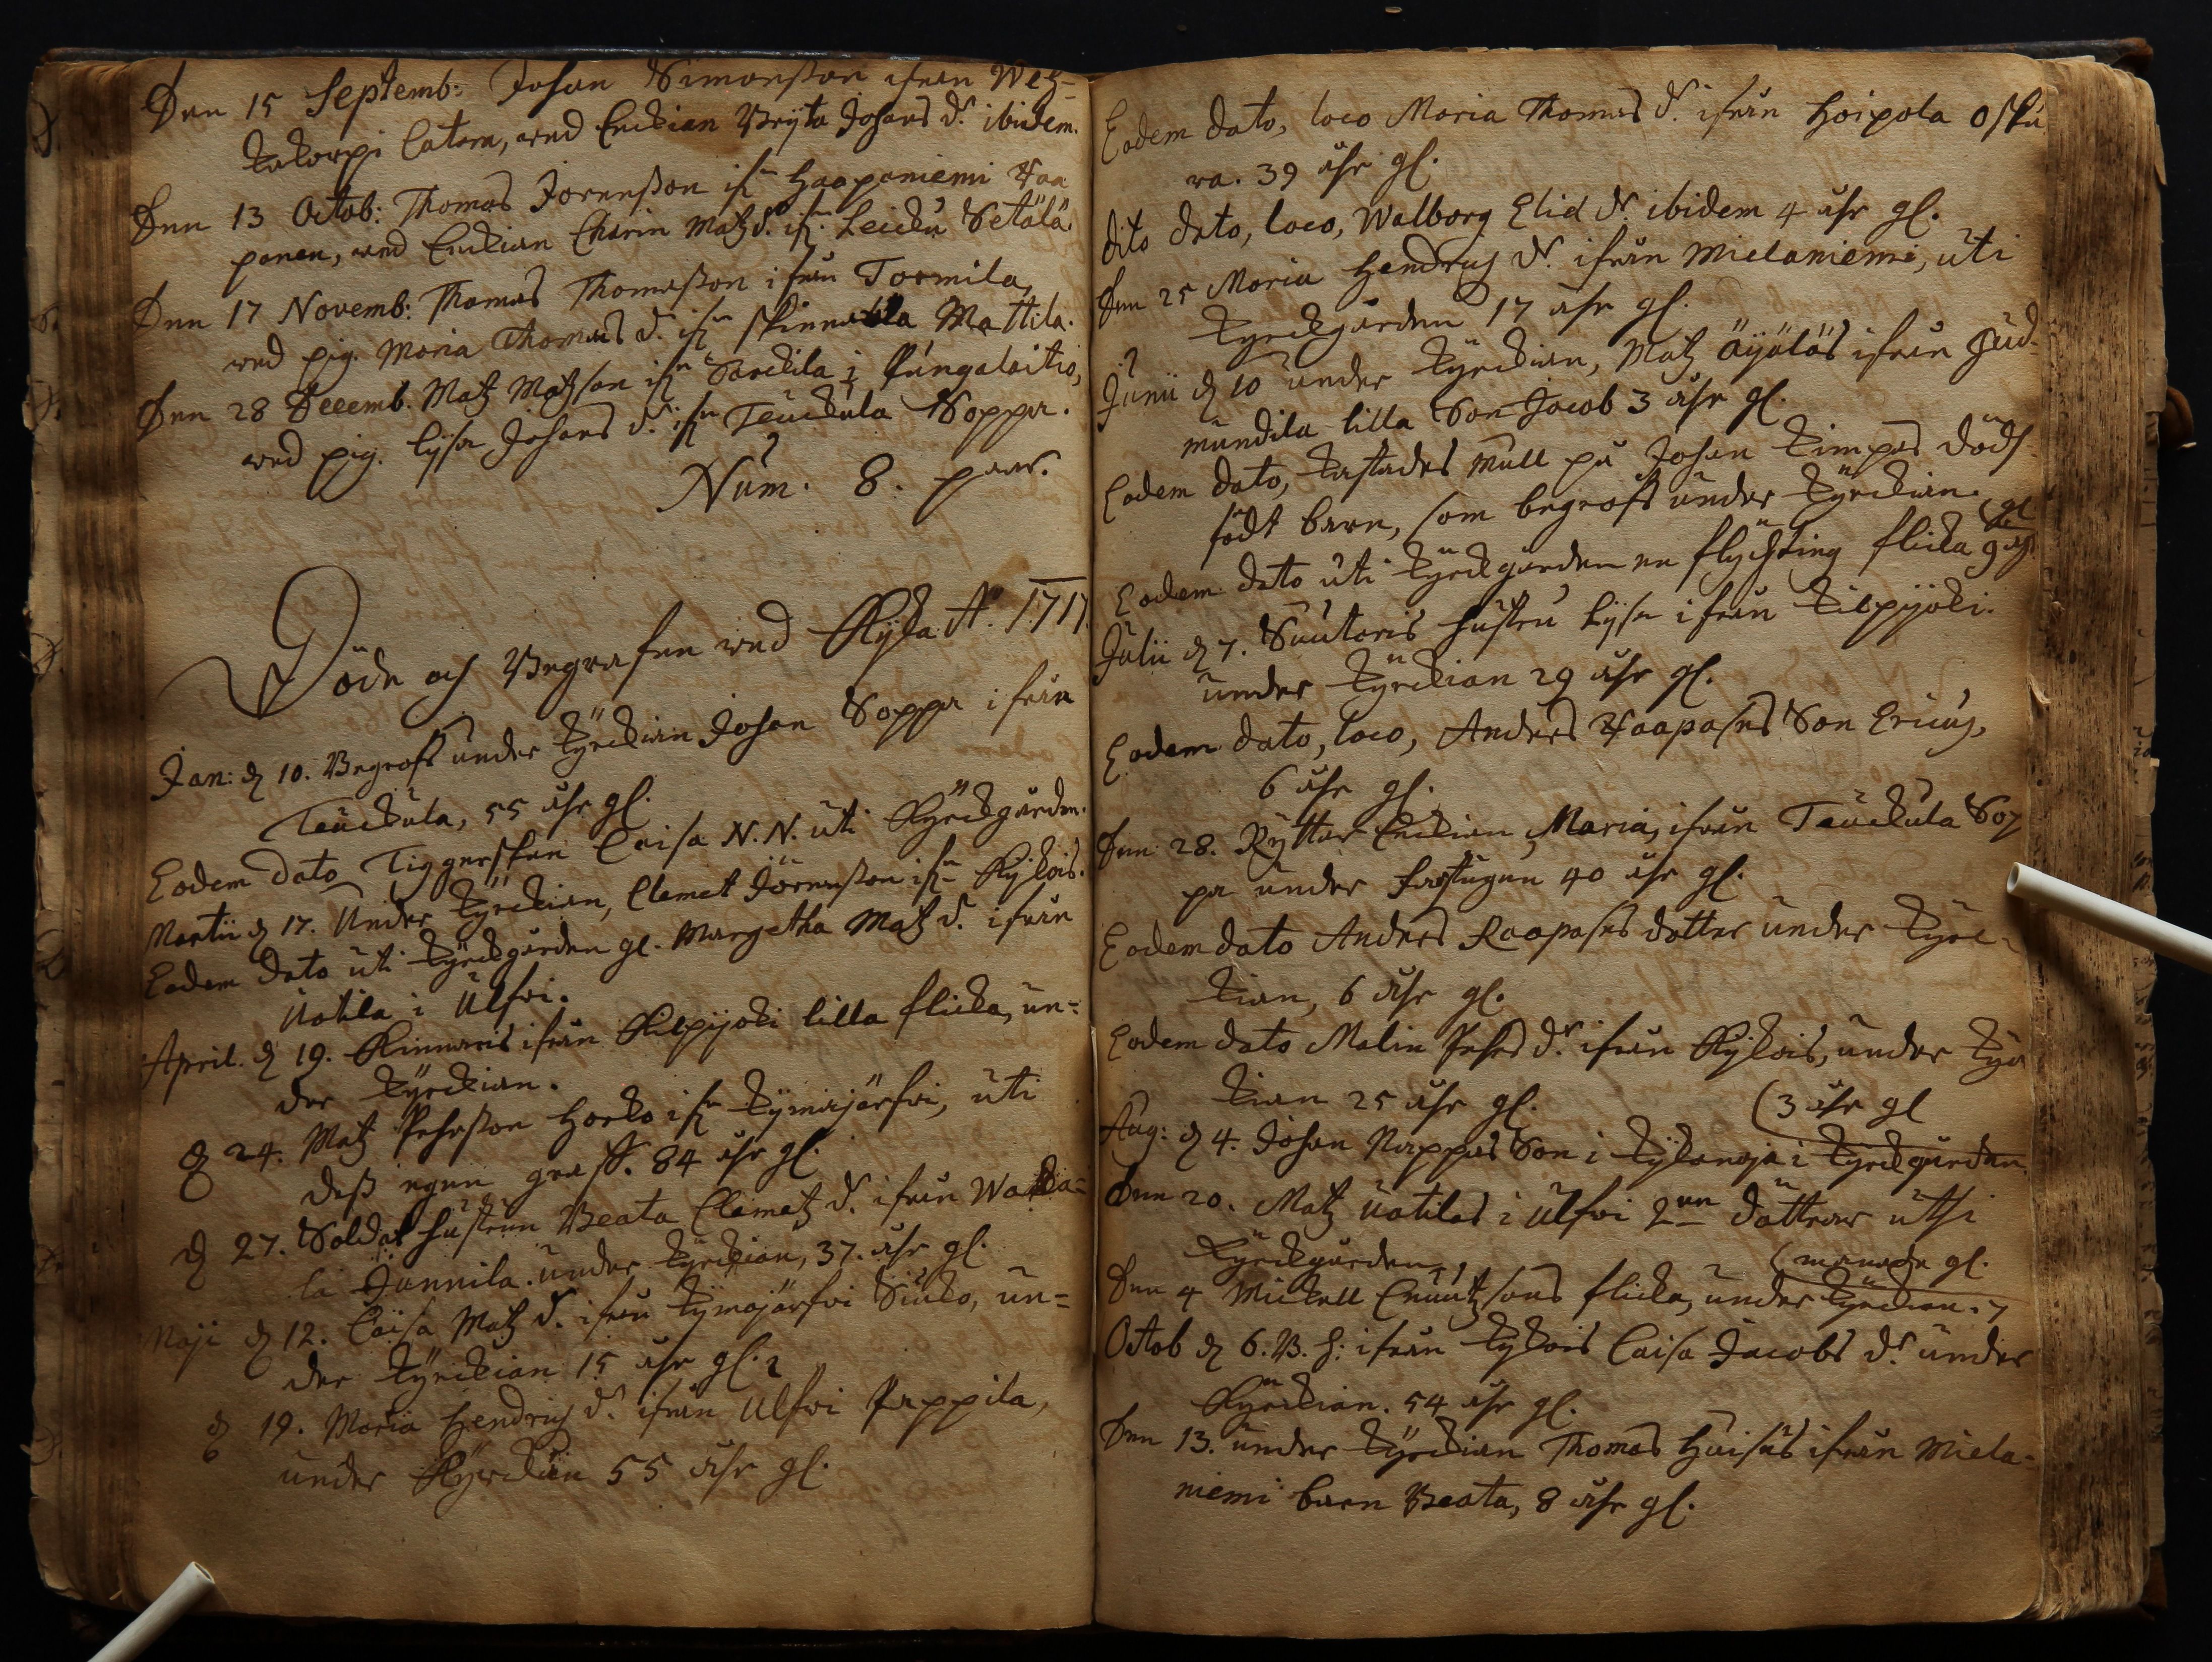 Den 15 Septemb: Johan Simonsson ifrån Weh-
kakorpi Catara, med Enckian Bryta Johans d:r ibidem.
Den 13 Octob: Thomas Jörensson ifr: Haaponiemi Haa
ponen, med Enckian Charin Matz d:r ifr: Leickü Setälä
Den 17 Novemb: Thomas Thomasson ifrån Tormila,
med pig. Maria Thomas d:r ifr: Skinnarila Mattila.
Den 28 Decemb. Matz Matzson ifr: Sarckila i Pungalaitio,
med pig. Lysa Johans d:r ifr: Teuckula Soppa.
Num. 8. paar.
Döde och Begrafne wed Kyla A:o 1717.
Jan: d 10. Begrofs under Kyrckian Johan Soppa ifrån
Teuckula, 55 åhr gl.
Eodem dato Tiggerskan Caisa N.N. uti Kyrckgården.
Martii d 17. Under Kyrckian, Clemet Jörensson ifr: Kykois.
Eodem dato uti Kyrckgården gl. Margetha Matz d:r ifrån
Uotila i Ulfvi.
April. d 19. Kinnaris ifrån Kilpijoki lilla flicka, un=
der Kyrckian.
d 24. Matz Pehrsson Horko ifr: Kymäjärfvi, uti
dess egen graff. 84 åhr gl.
d 27. Soldat hustrun Beata Clemetz d:r ifrån
la Junnila. under Kyrckian, 37. åhr gl.
Maji d 12. Caisa Matz d:r ifrån Kymäjärfvi Siuko, un=
der Kyrckian 15 åhr gl.
d 19. Maria Hendrichz d:r ifrån Ulfvi Pappila,
under Kyrckian 55 åhr gl.
Eodem dato, loco Maria Thomas d:r ifrån Hoipola Oska
ra. 39 åhr gl.
dito dato, loco, Walborg Elid:r ibidem 4 åhr gl.
Den 25 Maria Hendrichz d:r ifrån Mielaniemi, uti
Kyrckgården 17 åhr gl.
Junii d 10 under Kyrckian, Matz Äyäläs ifrån Gud-
mundila lilla Son Jacob 3 åhr gl.
Eodem dato, kastades mull på Johan Kimpas död
födt barn, som begrofs under Kyrckian.
Eodem dato uti Kyrckgården en flychting flicka 9 åhr (gl
Julii d 7. Suutaris hustru Lysa ifrån Kilpijoki.
under Kyrckian 29 åhr gl.
Eodem dato, loco, Anders Haapases Son Ericus,
6 åhr gl.
Den 28. Ryttar Enckian, Maria, ifrån Teuckula Sop
pa under 40 åhr gl.
Eodem dato Anders Raapases dotter under Kyrc-
kian, 6 åhr gl.
Eodem dato Malin Pehrs d:r ifrån Kykois, under Kyrc
kian 25 åhr gl.
(3 åhr gl
Aug: d 4. Johan Nappas Son i Kykänoja i Kyrckgården
Den 20. Matz Uotilas i Ulfvi 2:ne döttrar uthi
Kyrckgården.
(månader gl.
Den 4 Mickell Cnuutzsons flicka, under Kyrckian. 7
Octob d 6. B. H: ifrån Kykois Caisa Jacobs d:r under
Kyrckian. 54 åhr gl.
Den 13. under Kyrckian Thomas Huisus ifrån Miela-
niemi barn Beata, 8 åhr gl.